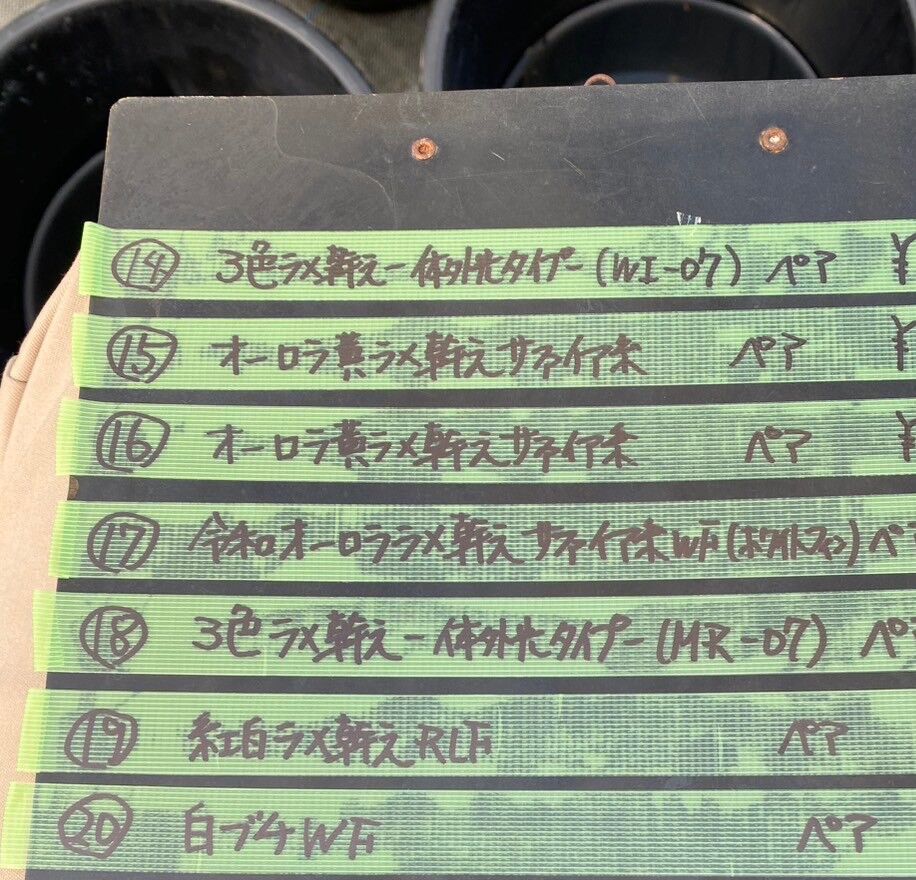 ⑭ 3色ラメ幹え一体外光タイプー(WI-07) ペア ¥
⑮ オーロラ黄ラメ幹えサファイア系 ペア ¥
⑯ オーロラ黄ラメ幹えサファイア系 ペア ¥
⑰ 令和オーロララメ幹えサファイア系WF(ホワイトフィン) ペア
⑱ 3色ラメ幹え一体外光タイプー(MR-07) ペア
⑲ 紅白ラメ幹えRLF ペア
⑳ 白ブチWF ペア